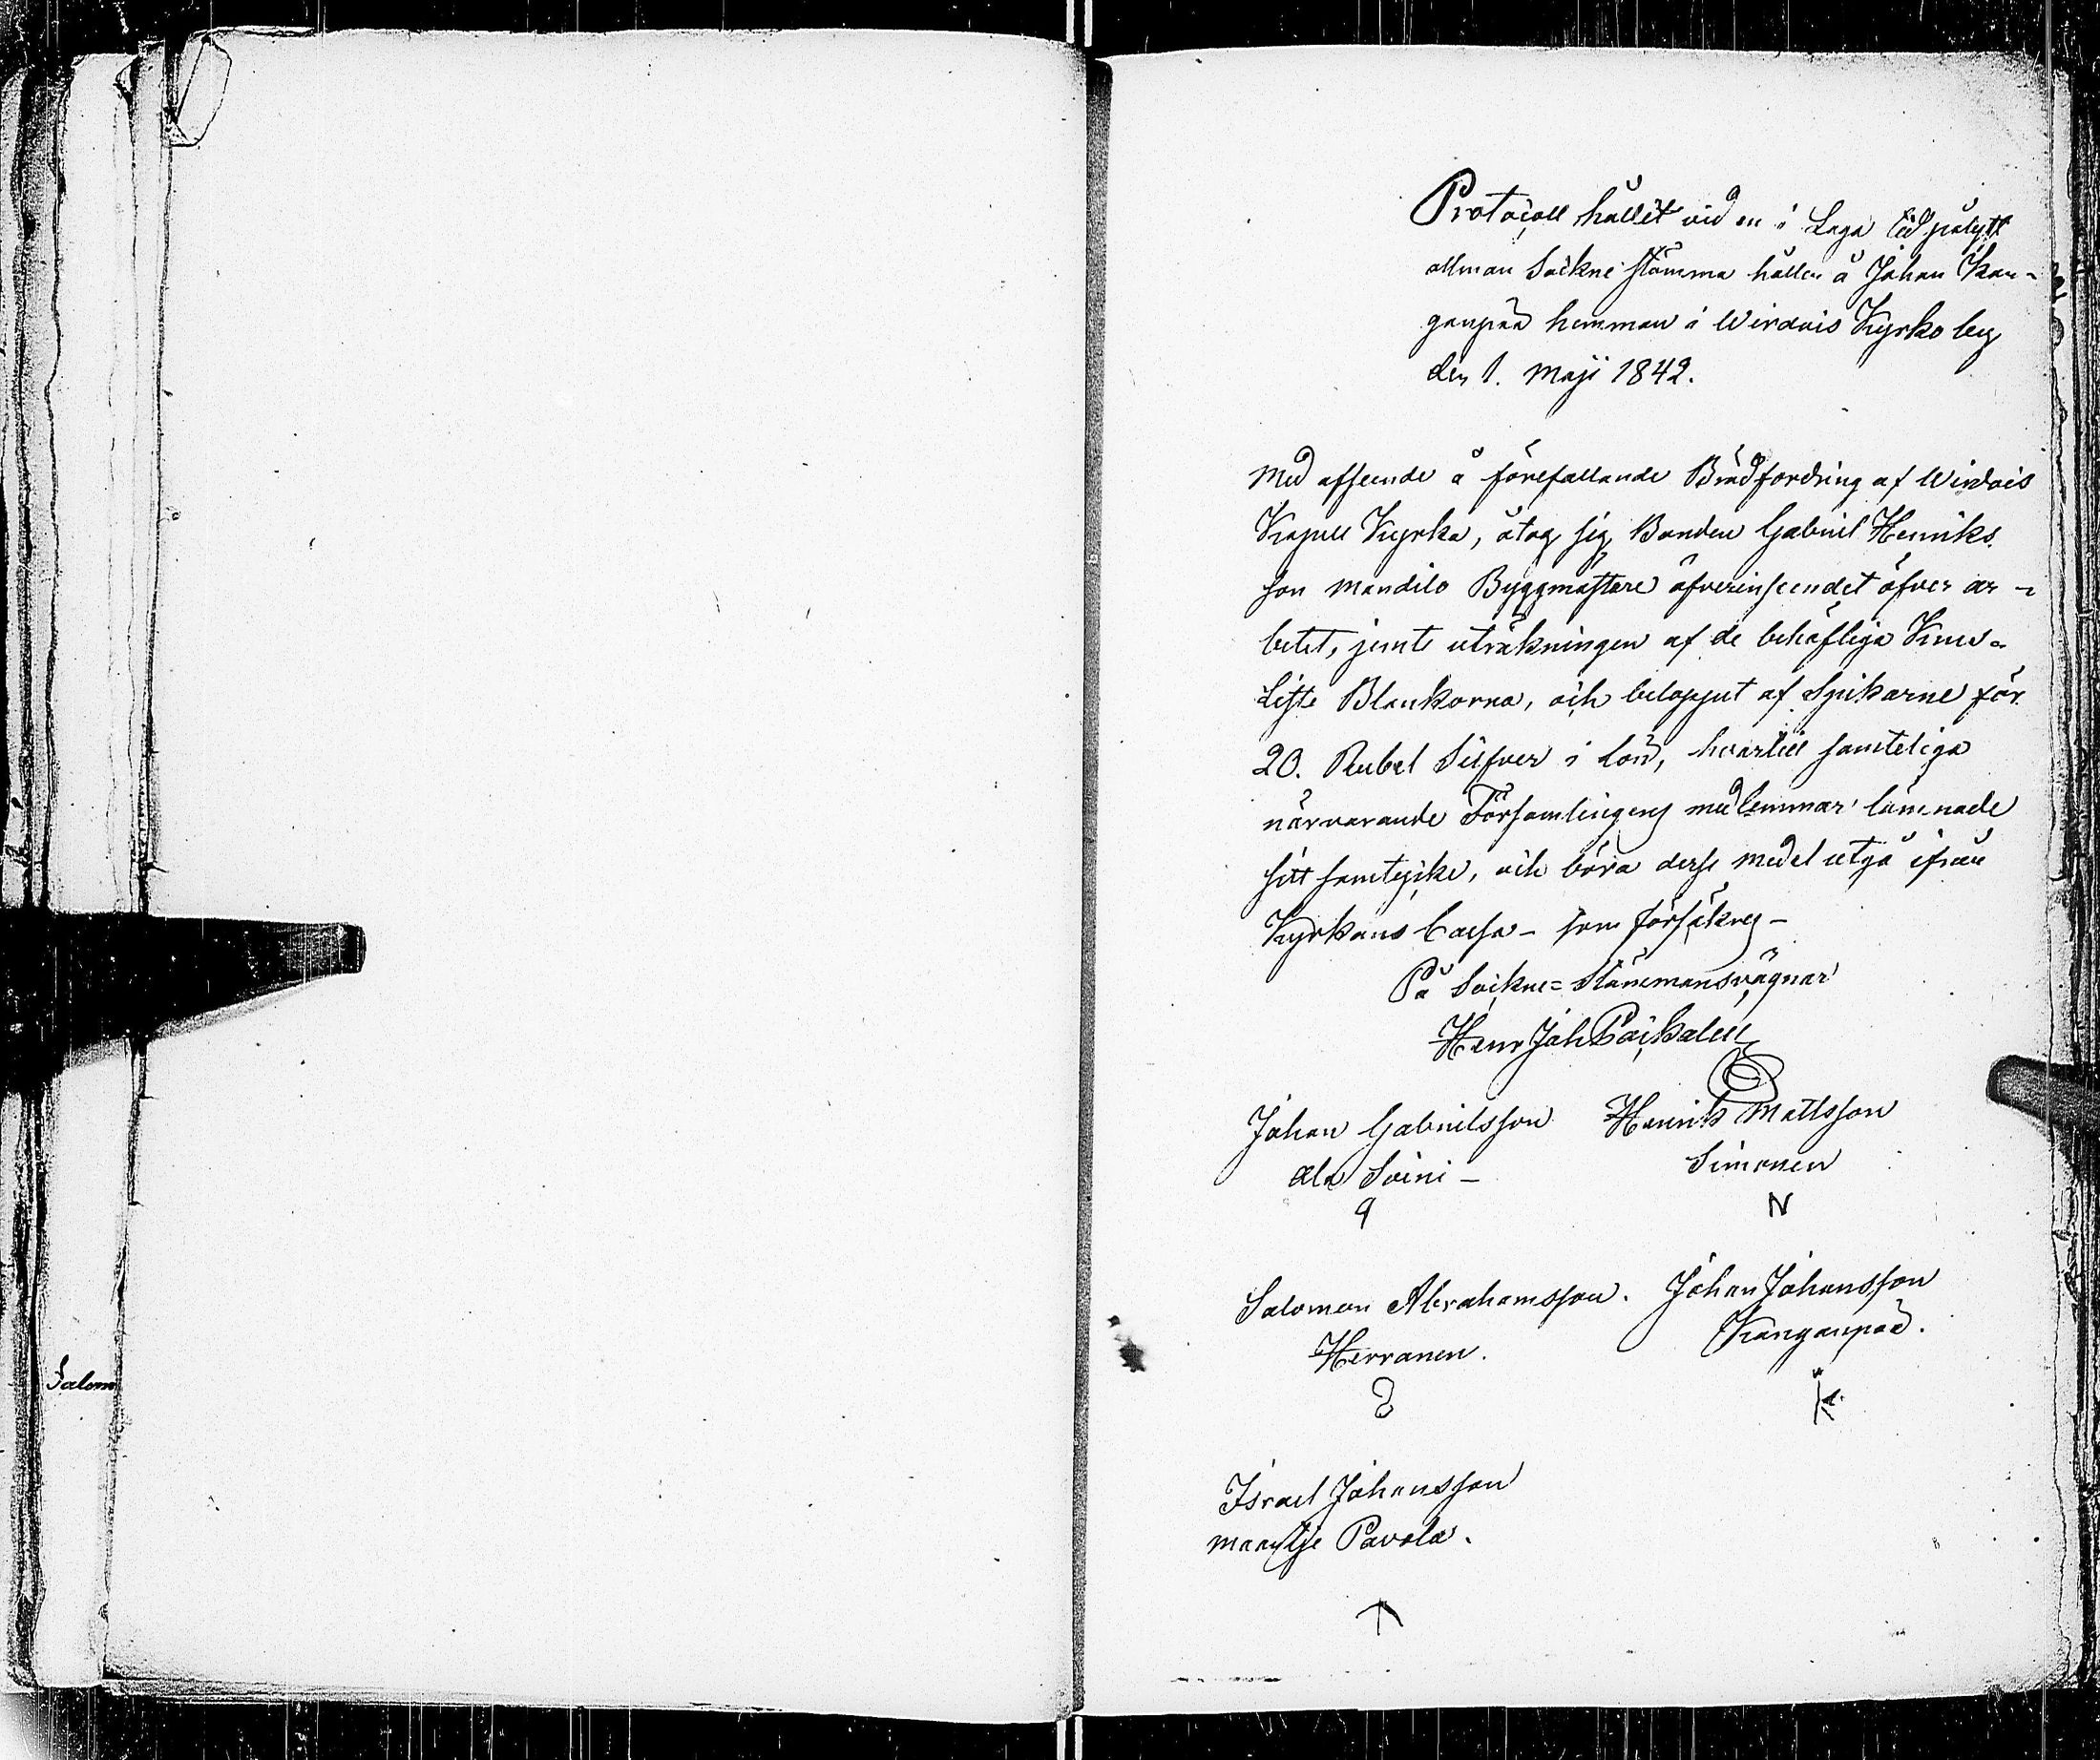 Protocoll hållit vid en i Laga tid pålyst
allmän Sockne stämma hållen å Johan Kan-
ganpää hemman i Wirdois Kyrko by
den 1. Maji 1842.
Med afseende å förefallande Brädfordring af Wirdois
Kapell Kyrka, åtog sig Bonden Gabriel Henriks
son Mandilo Byggmästare öfverinseendet öfver ar-
betet, jemte uträkningen af de behöfliga
Liste Blankorna, och beloppet af Spikarne för
20. Rubel Silfver i Lön, hvartill samteliga
närvarande Församlingens medlemmar lämnade
sitt samtycke, och böra dessa medel utgå ifrån
Kyrkans Cassa - som försäkras -
På Sockne=Stämmansvägnar
Henr Joh Paçkalen
Johan Gabrielsson Henrik Mattsson
ala Soini - Simonen
9 N
Salomon Abrahamsson. Johan Johansson
Herranen. Kanganpää.
K
Israel Johansson
Pavola.
Salom